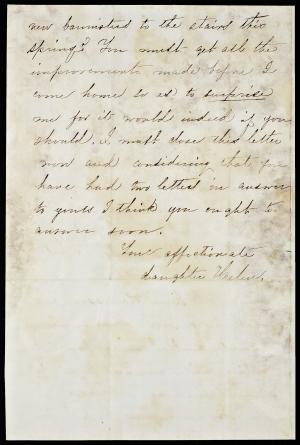 new bannisters to the stairs this
spring? You must get all the
improvements made before I
come home so as to surprise
me for it would indeed if you
should. I must close this letter
now and considering that you
have had two letters in answer
to yours I think you ought to
answer soon.
Your affectionate
daughter